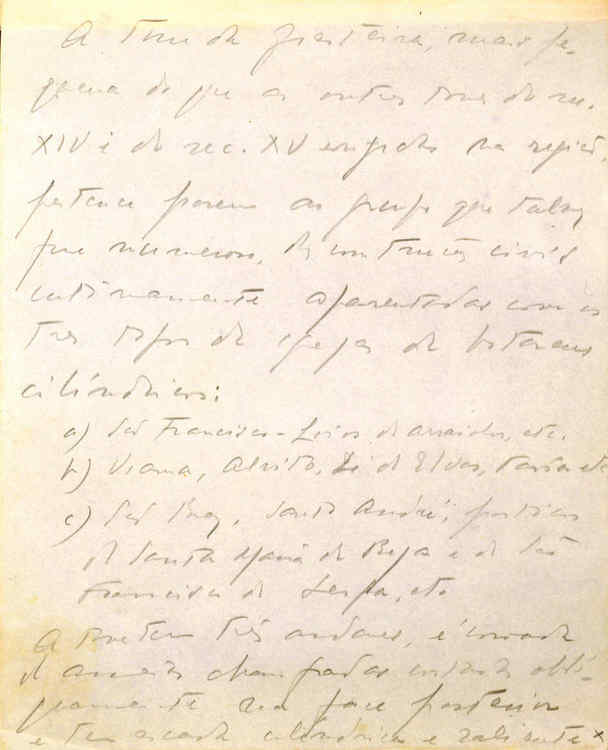 A torre da
quena do que as outras torres do sec.
XIV e do sec. XV erigidas na região,
pertence porem ao grupo que talvez
fosse numeroso, de construções civis
intimamente aparentadas com os
tres tipos de igrejas de botareus
cilíndricos:
a) São Francisco - Loios de Arraiolos, etc.
b) Viana, Alvito, Sé de Elvas, etc
c) São Braz, Santo André, portico
de Santa Maria de Beja e de São
Francisco de Serpa, etc
A torre tem três andares, é coroada
de ameias chanfradas cortadas obli-
quamente na face posterior
e tem escada cilíndrica e saliente x